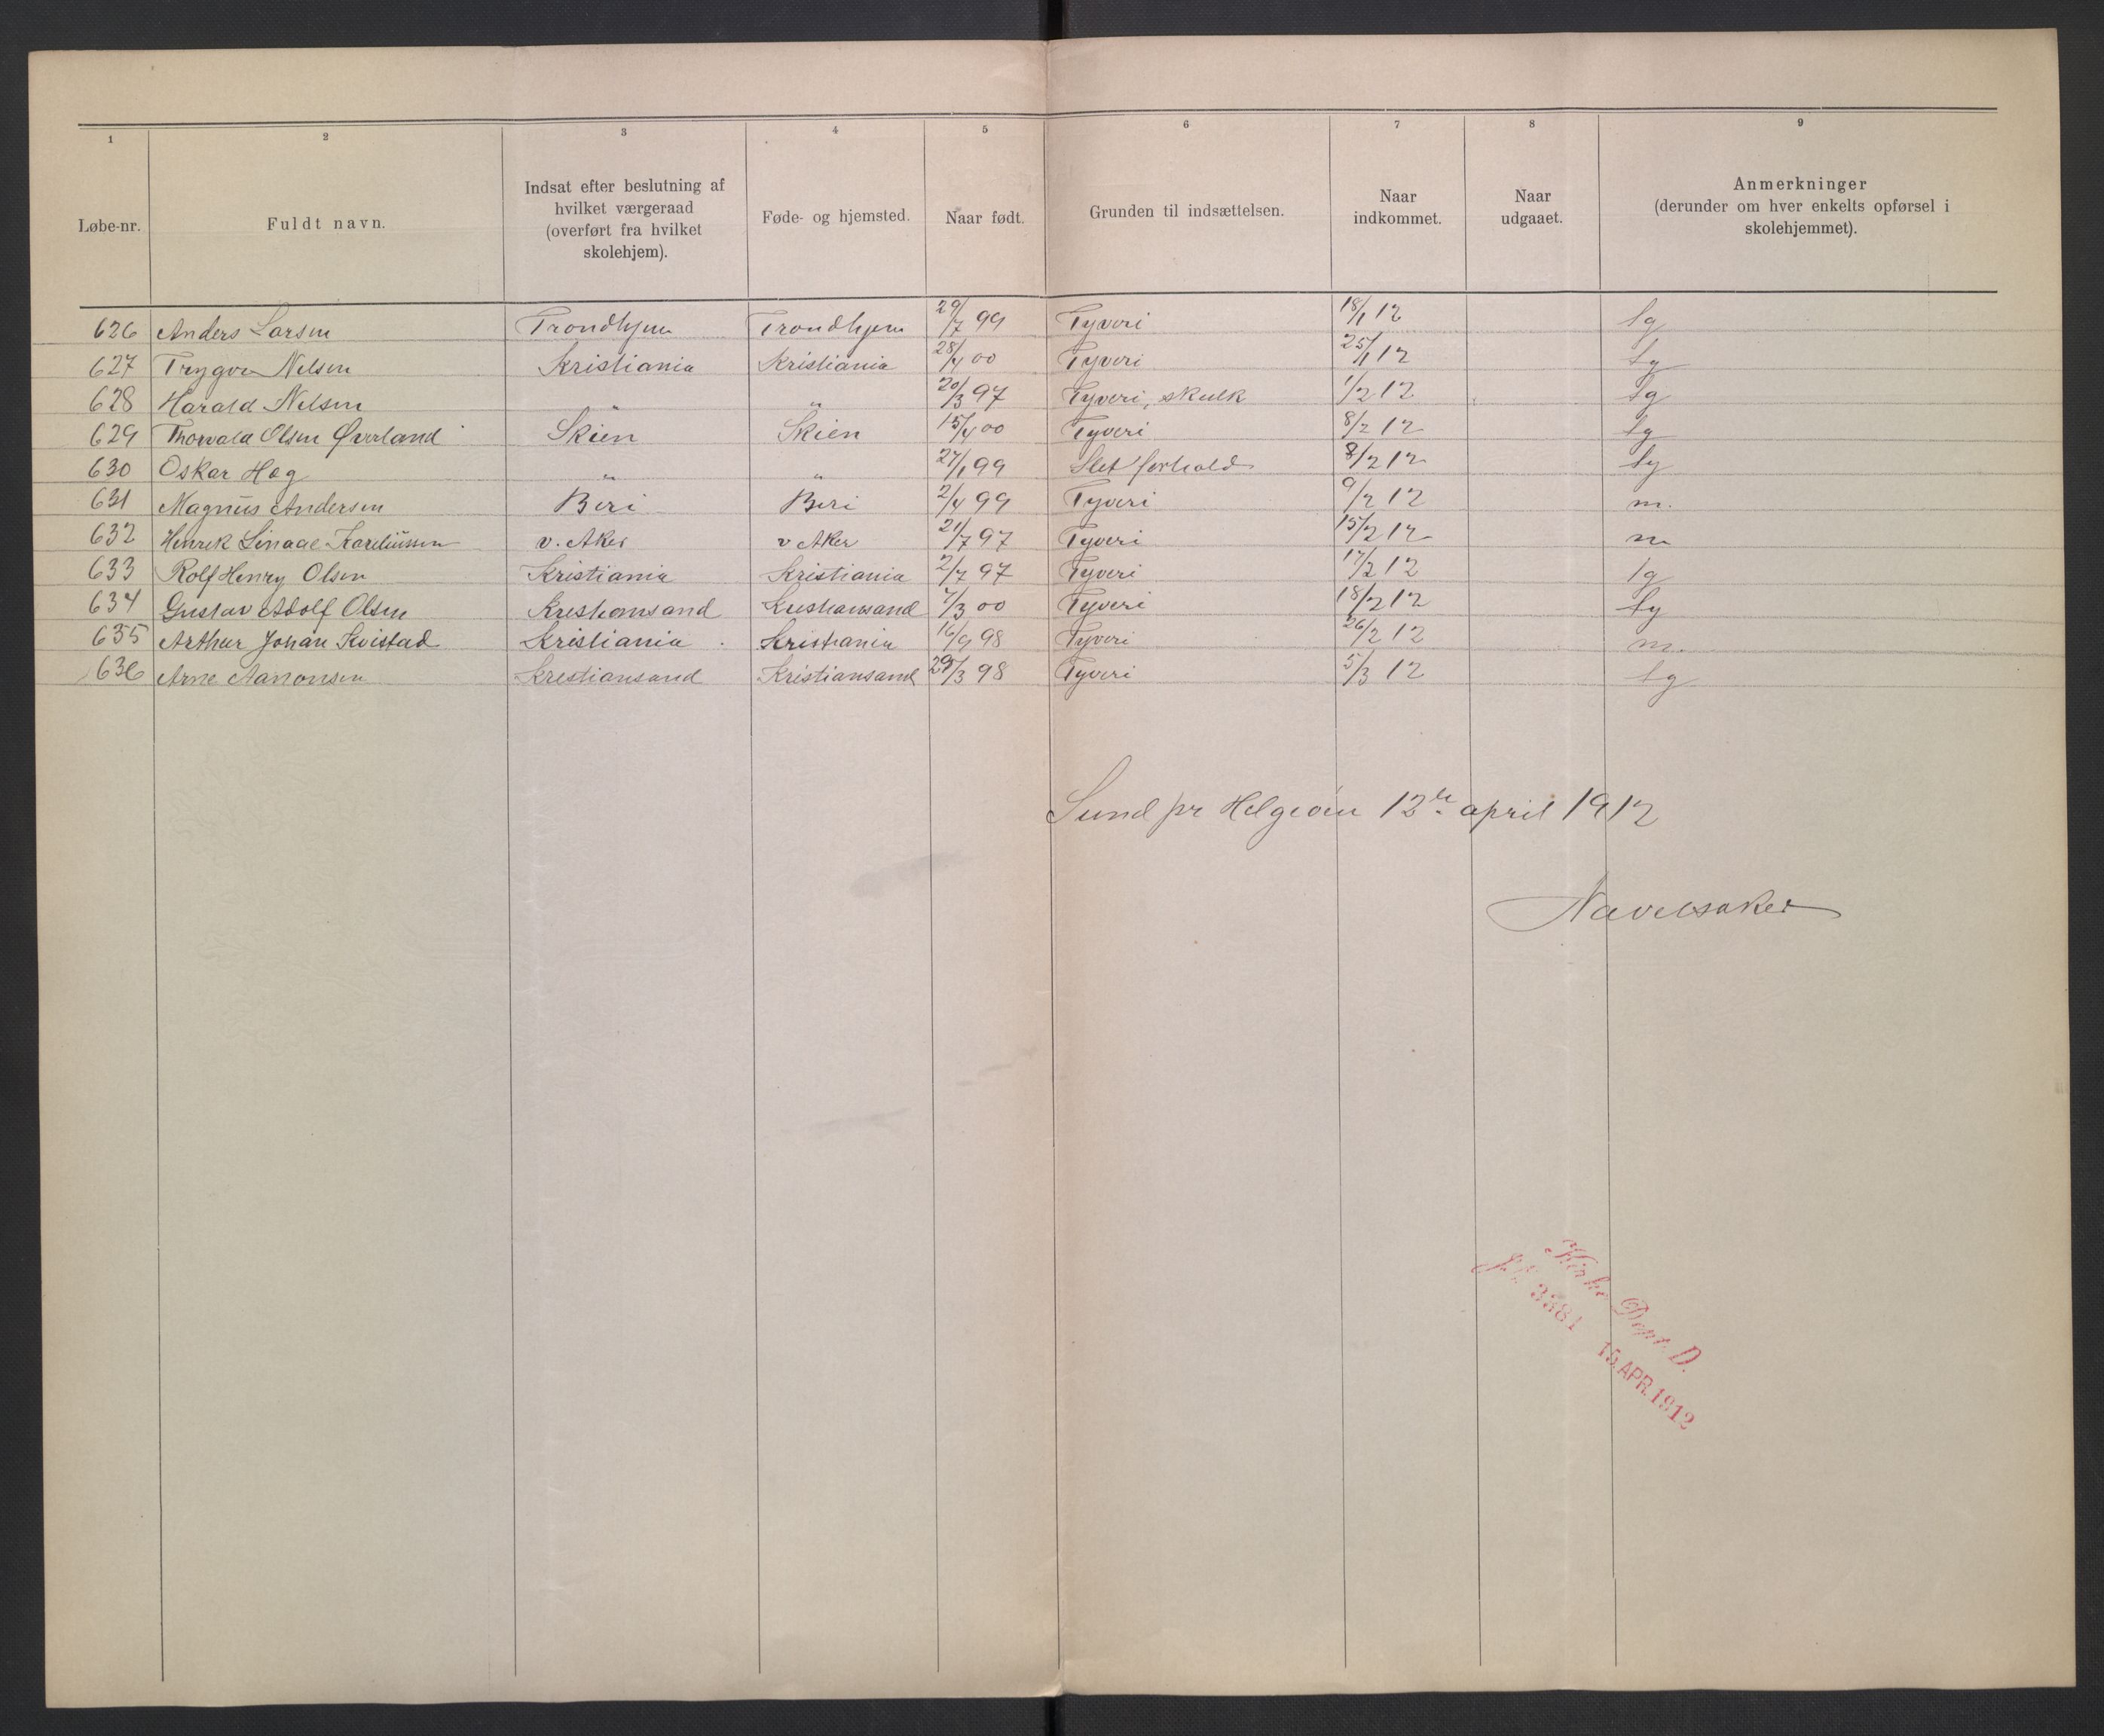 1 2 3 4 5 6 7 8 9
Løbe-nr. | Fuldt navn. | Indsat efter beslutning af hvilket værgeraad (overført fra hvilket skolehjem). | Føde- og hjemsted. | Naar født. | Grunden til indsættelsen. | Naar indkommet. | Naar udgaaet. | Anmerkninger (derunder om hver enkelts opførsel i skolehjemmet).
626 Anders Larsen Trondhjem Trondhjem 29/7 99 Tyveri 18/1 12
627 Trygve Nelsen Kristiania Kristiania 28/4 00 Tyveri 25/1 12
628 Harald Nelsen " " 20/3 97 Tyveri, skulk 1/2 12
629 Thorvald Olsen Øverland Skien Skien 15/4 00 Tyveri 8/2 12
630 Oskar Hag " " 27/1 99 Slet forhold 8/2 12
631 Magnus Andersen Beri Beri 2/4 99 Tyveri 9/2 12 m.
632 Henrik Kareliussen v. Aker v Aker 21/7 97 Tyveri 15/2 12 m
633 Rolf Henry Olsen Kristiania Kristiania 2/7 97 Tyveri 17/2 12
634 Gustav Adolf Olsen Kristiansand Kristiansand 7/3 00 Tyveri 18/2 12
635 Arthur Johan Kvistad Kristiania Kristiania 16/9 98 Tyveri 26/2 12 m.
636 Arne Aanonsen Kristiansand Kristiansand 29/3 98 Tyveri 5/3 12
Sund pr Helgeøen 12te april 1912
Navelsaker
Kirke Dept. D.
Jr. 3381 15. APR. 1912